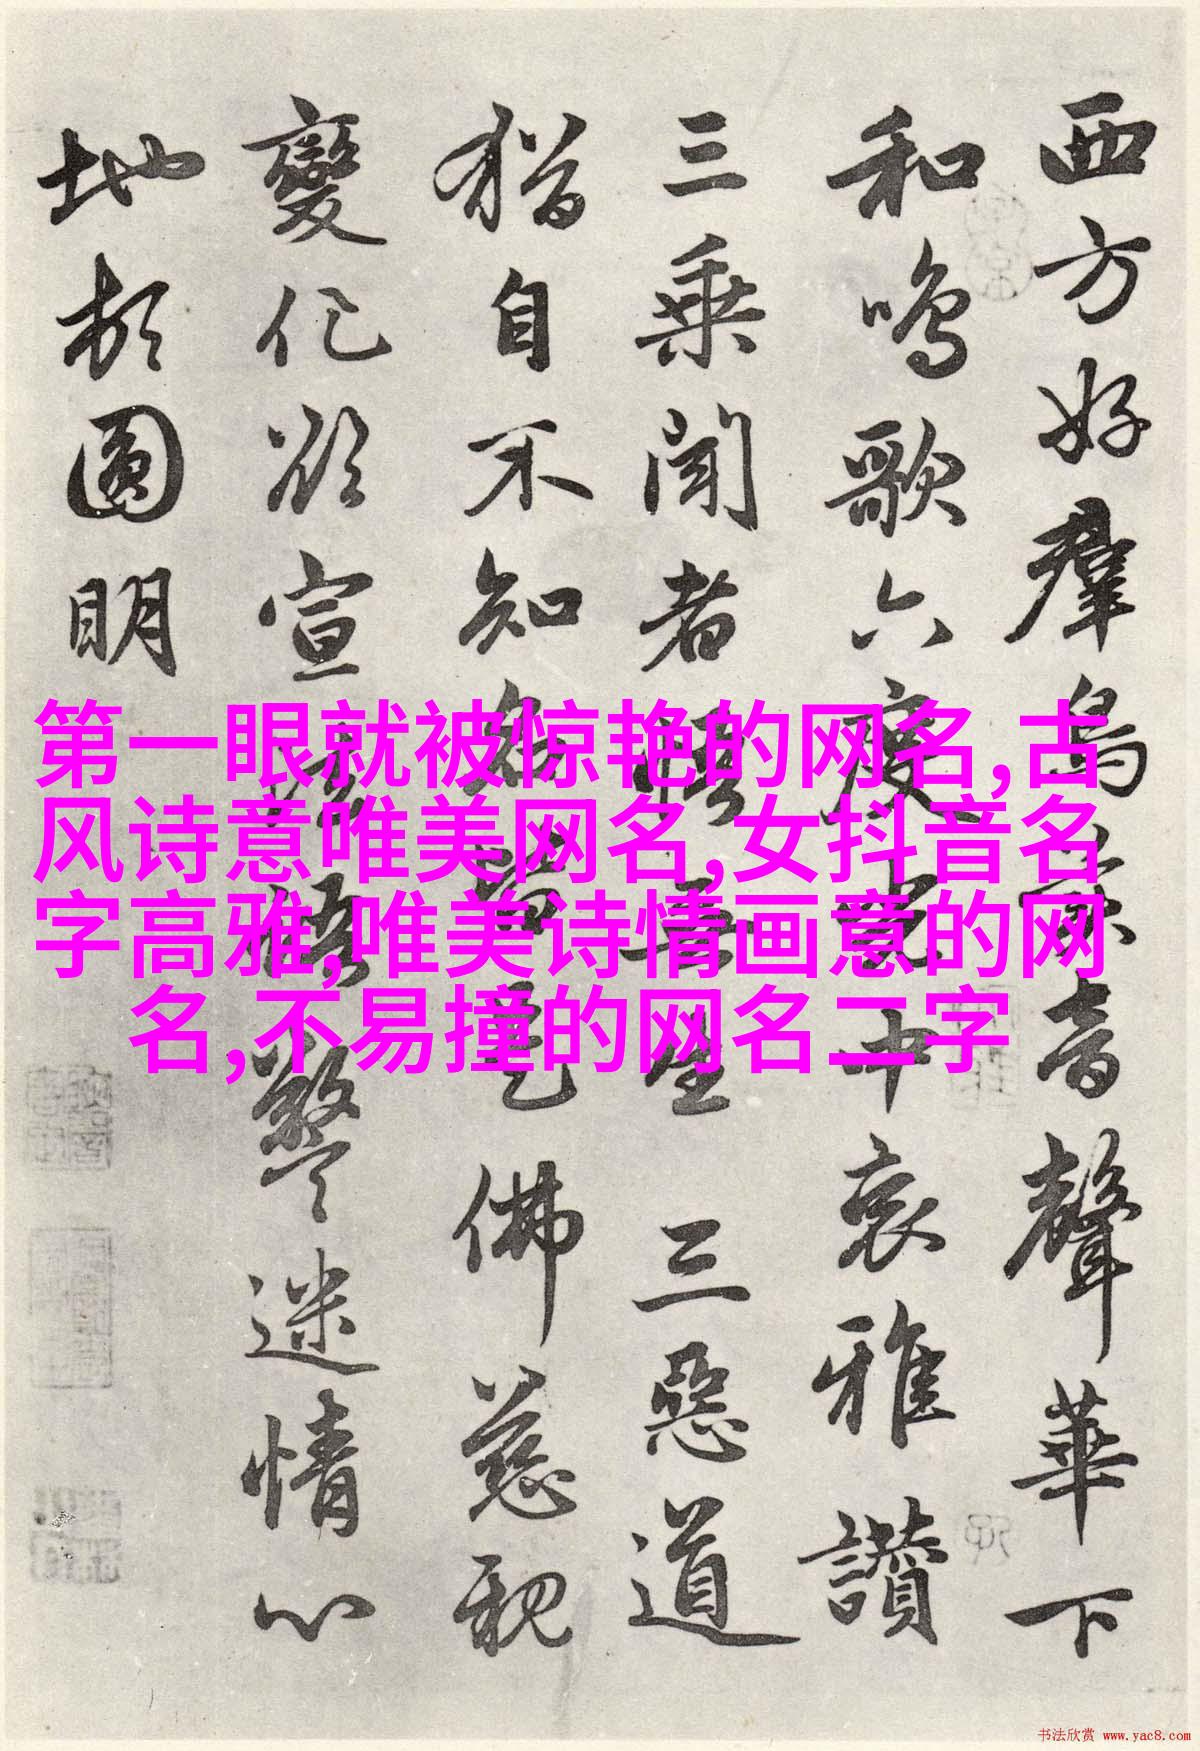 西方好群鳥音聲華下
和鳴歌六度光中哀雅讚
三乘聞者悟無生三惡道
猶自不知名皆是佛慈親
變化欲宣警迷情心
地頓圓明
第一眼就被惊艳的网名,古
风诗意唯美网名,女抖音名
字高雅,唯美诗情画意的网
名,不易撞的网名二字
书法欣赏 www.yac8.com